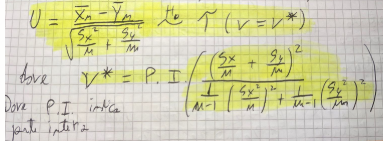 U = (X̄n - Ȳm) / √(Sx²/n + Sy²/m) ~ H₀ T(ν = ν*)
dove ν* = P.I. ((Sx/n + Sy/m)² / (1/(n-1) (Sx²/n)² + 1/(m-1) (Sy²/m)²))
Dove P.I. indica
parte intera